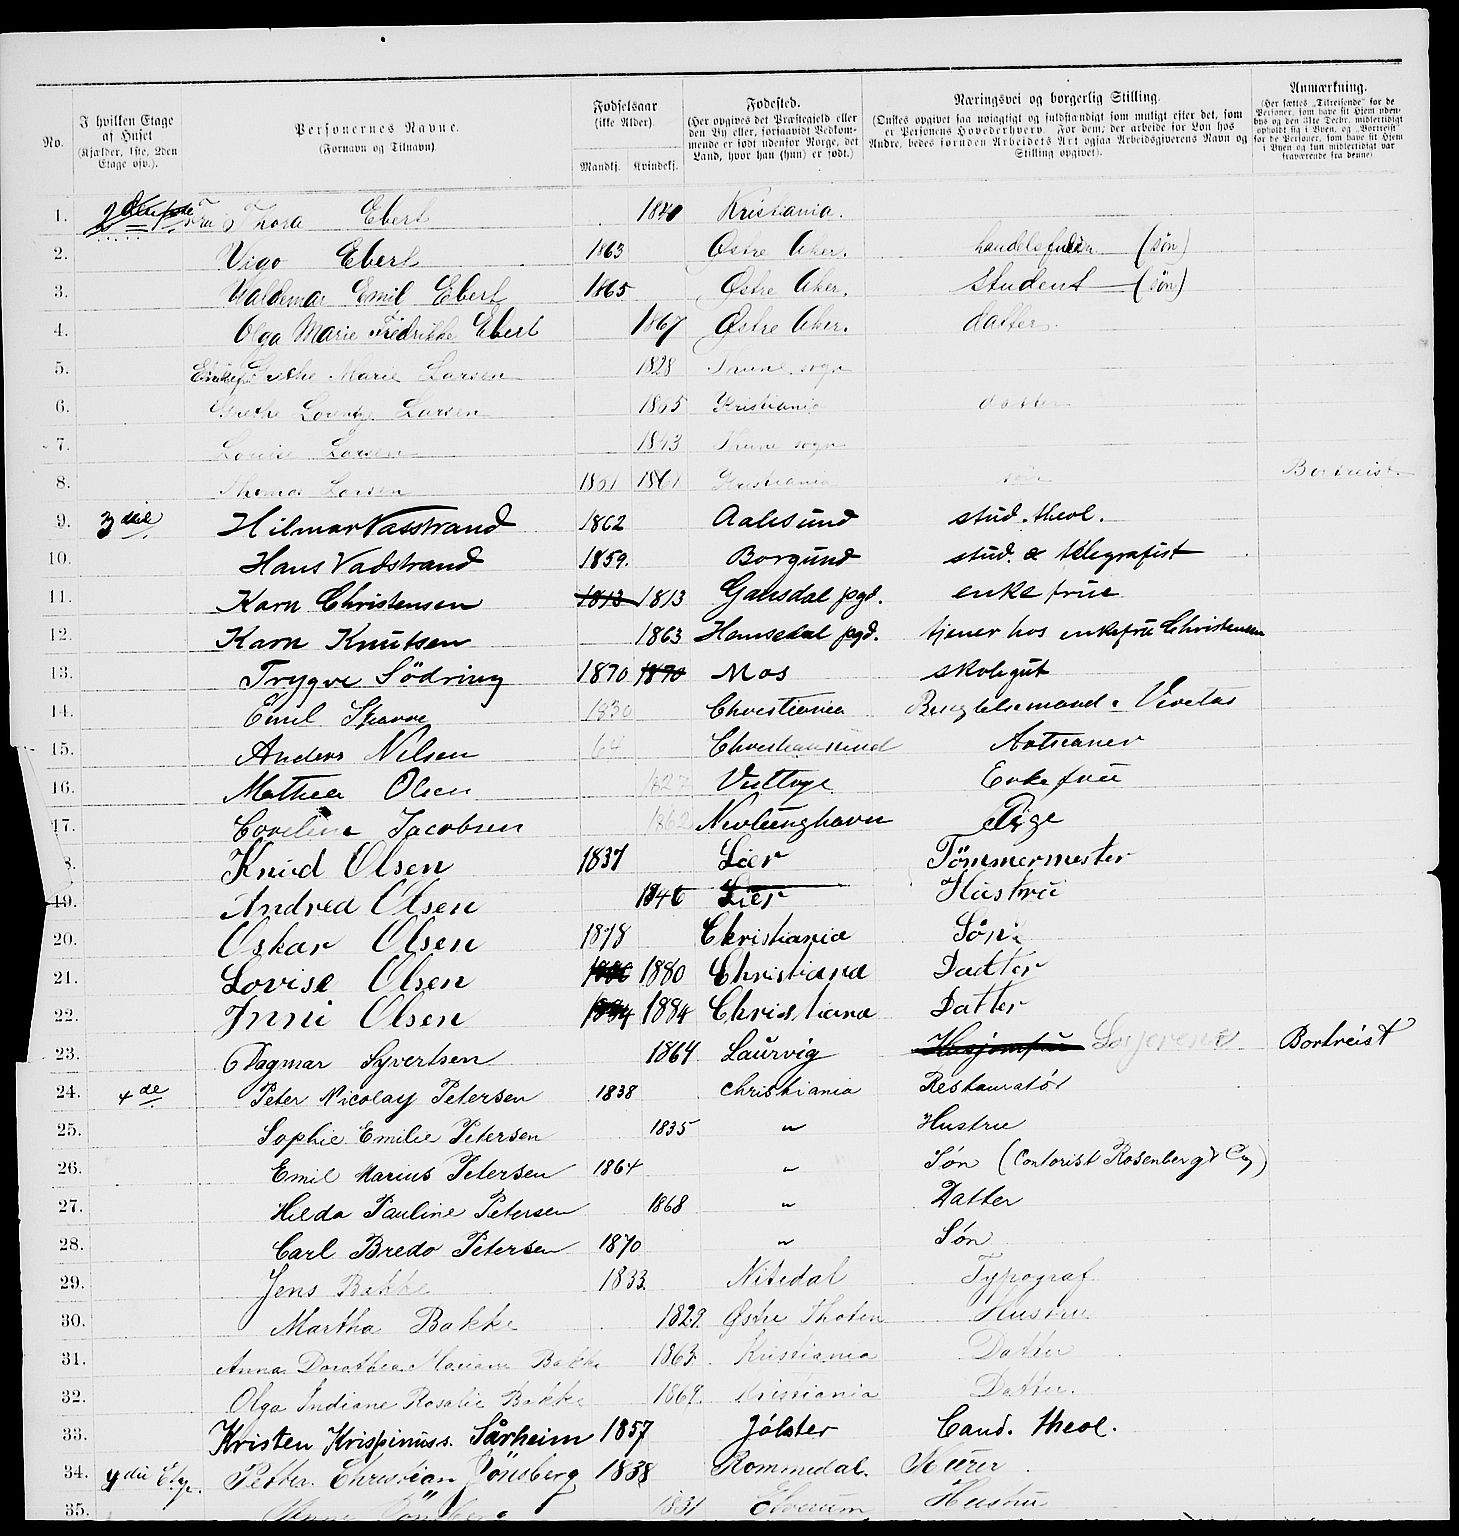 No.
I hvilken Etage af Huset (Kjælder, 1ste, 2den Etage osv.).
Personernes Navne. (Fornavn og Tilnavn)
Fødselsaar (ikke Alder). Mandkj. Kvindekj.
Fødested. (Her opgives det Præstegjeld eller den By eller, forsaavidt Vedkommende er født udenfor Norge, det Land, hvor han (hun) er født.)
Næringsvei og borgerlig Stilling. (Ønskes opgivet saa nøiagtigt og fuldstændigt som muligt efter det, som er Personens Hovederhverv. For dem, der arbeide for Løn hos Andre, bedes foruden Arbeidets Art ogsaa Arbeidsgiverens Navn og Stilling opgivet).
Anmærkning. (Her sættes „Tilreisende" for de Personer, som have sit Hjem udenbys og den 31te Decbr. midlertidigt opholdt sig i Byen, og „Bortreist" for de Personer, som have sit Hjem i Byen og kun midlertidigt var fraværende fra denne)
1. Fru Thora Ebert 1840 Kristiania.
2. Vigo Ebert 1863 Østre Aker. (søn)
3. Valdemar Emil Ebert 1865 Østre Aker. Student (søn)
4. Olga Marie Fredrikke Ebert 1867 Østre Aker. datter
5. Marie Larsen 1828 sogn
6. Grethe Larsen 1865 Kristiania datter
7. Louise Larsen 1843 sogn
8. Thomas Larsen 1861 1861 Kristiania søn Bortreist
9. 3die Hilmar Vasstrand 1862 Aalesund stud. theol.
10. Hans Vadstrand 1859. Borgund stud. & telegrafist
11. Karn Christensen 1813 1813 Gausdal pgd. enkefrue
12. Karn Knutsen 1863 Hemsedal pgd. tjener hos enkefru Christensen
13. Trygve Södring 1870 1870 Mos skolegut
14. Emil 1830 Christiania
15. Anders Nilsen 64 Christiansund
16. Mathea Olsen 1827 Enkefrue
17. Jacobsen 1862 Nevlunghavn Pige
18. Knud Olsen 1837 Lier Tömmermester
19. Andrea Olsen 1846 Lier Hustru
20. Oskar Olsen 1878 Christiania Søn
21. Lovise Olsen 1880 1880 Christiana Dadter
22. Jnni Olsen 1884 1884 Christiana Datter
23. Dagmar Syvertsen 1864 Laurvig Losjerende Bortreist
24. 4de Peter Nicolay Petersen 1838 Christiania Restauratör
25. Sophie Emilie Petersen 1835 " Hustru
26. Emil Marius Petersen 1864 " Søn (Contorist Rosenberg & Co)
27. Hilda Pauline Petersen 1868 " Datter
28. Carl Bredo Petersen 1870 " Søn
29. Jens Bakke 1833. Nitedal Typograf
30. Martha Bakke 1829. Østre Thoten Hustru
31. Anna Dorothea Mariane Bakke 1863. Kristiania Datter
32. Olga Indiane Rosalie Bakke 1869. Kristiania Datter.
33. Kristen Krispinuss. Sårheim 1857 Jølster Cand. theol.
34. 4die Etg. Petter Christian Jönsberg 1838 Rommedal. Murer
35. 1831 Elverum Hustru